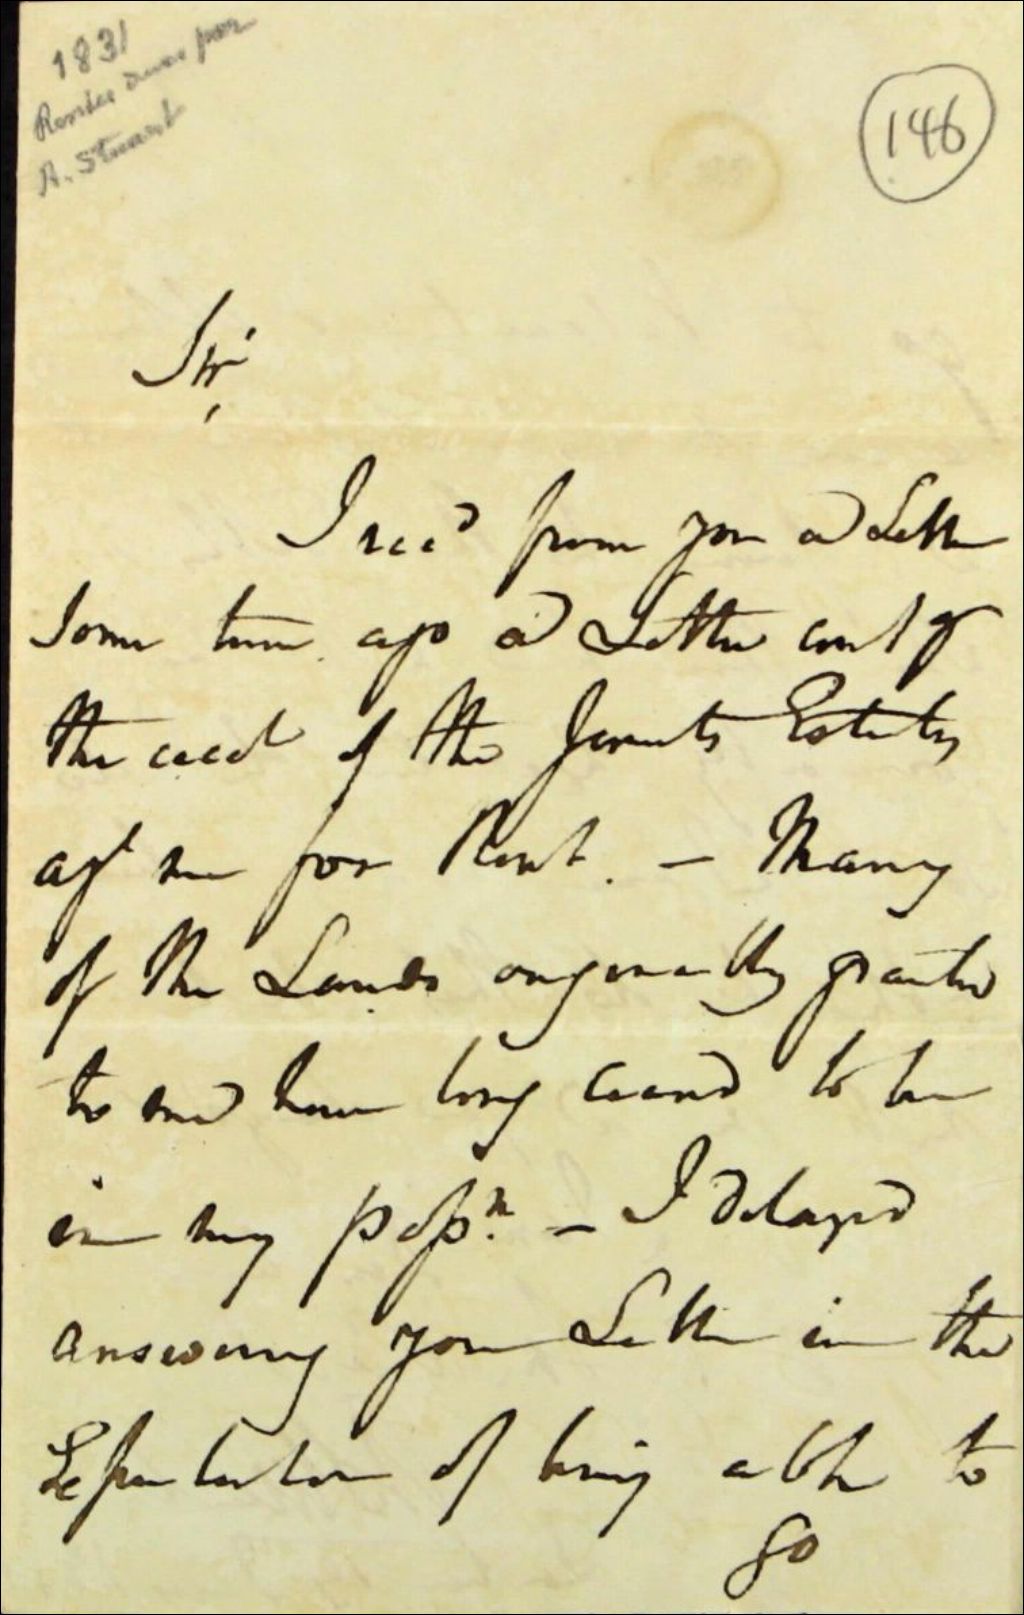 1831
Rentes dues par
A. Stuart
146
Sir,
I recd from you a Letter
some time ago a Letter contg
the acct of the Jesuits Estates
agt me for Rent. – Many
of the Lands originally granted
to me have long ceased to be
in my possn. – I delayed
answering your Letter in the
Expectation of being able to
go